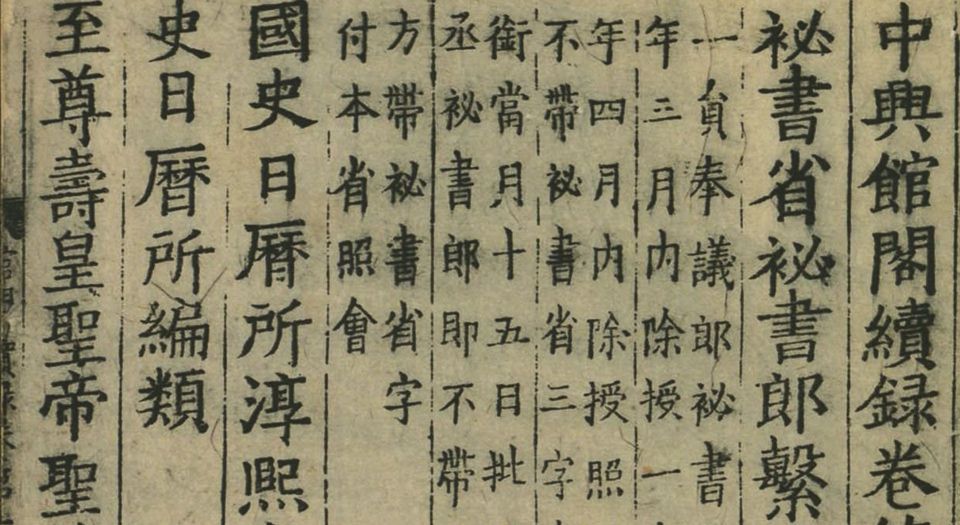 中興館閣續録卷
祕書省祕書郎繫
一員奉議郎祕書
年三月内除授一
年四月内除授照
不帶祕書省三字
銜當月十五日批
丞祕書郎即不帶
方帶祕書省字
付本省照會
國史日曆所淳熙
史日曆所編類
至尊壽皇聖帝聖